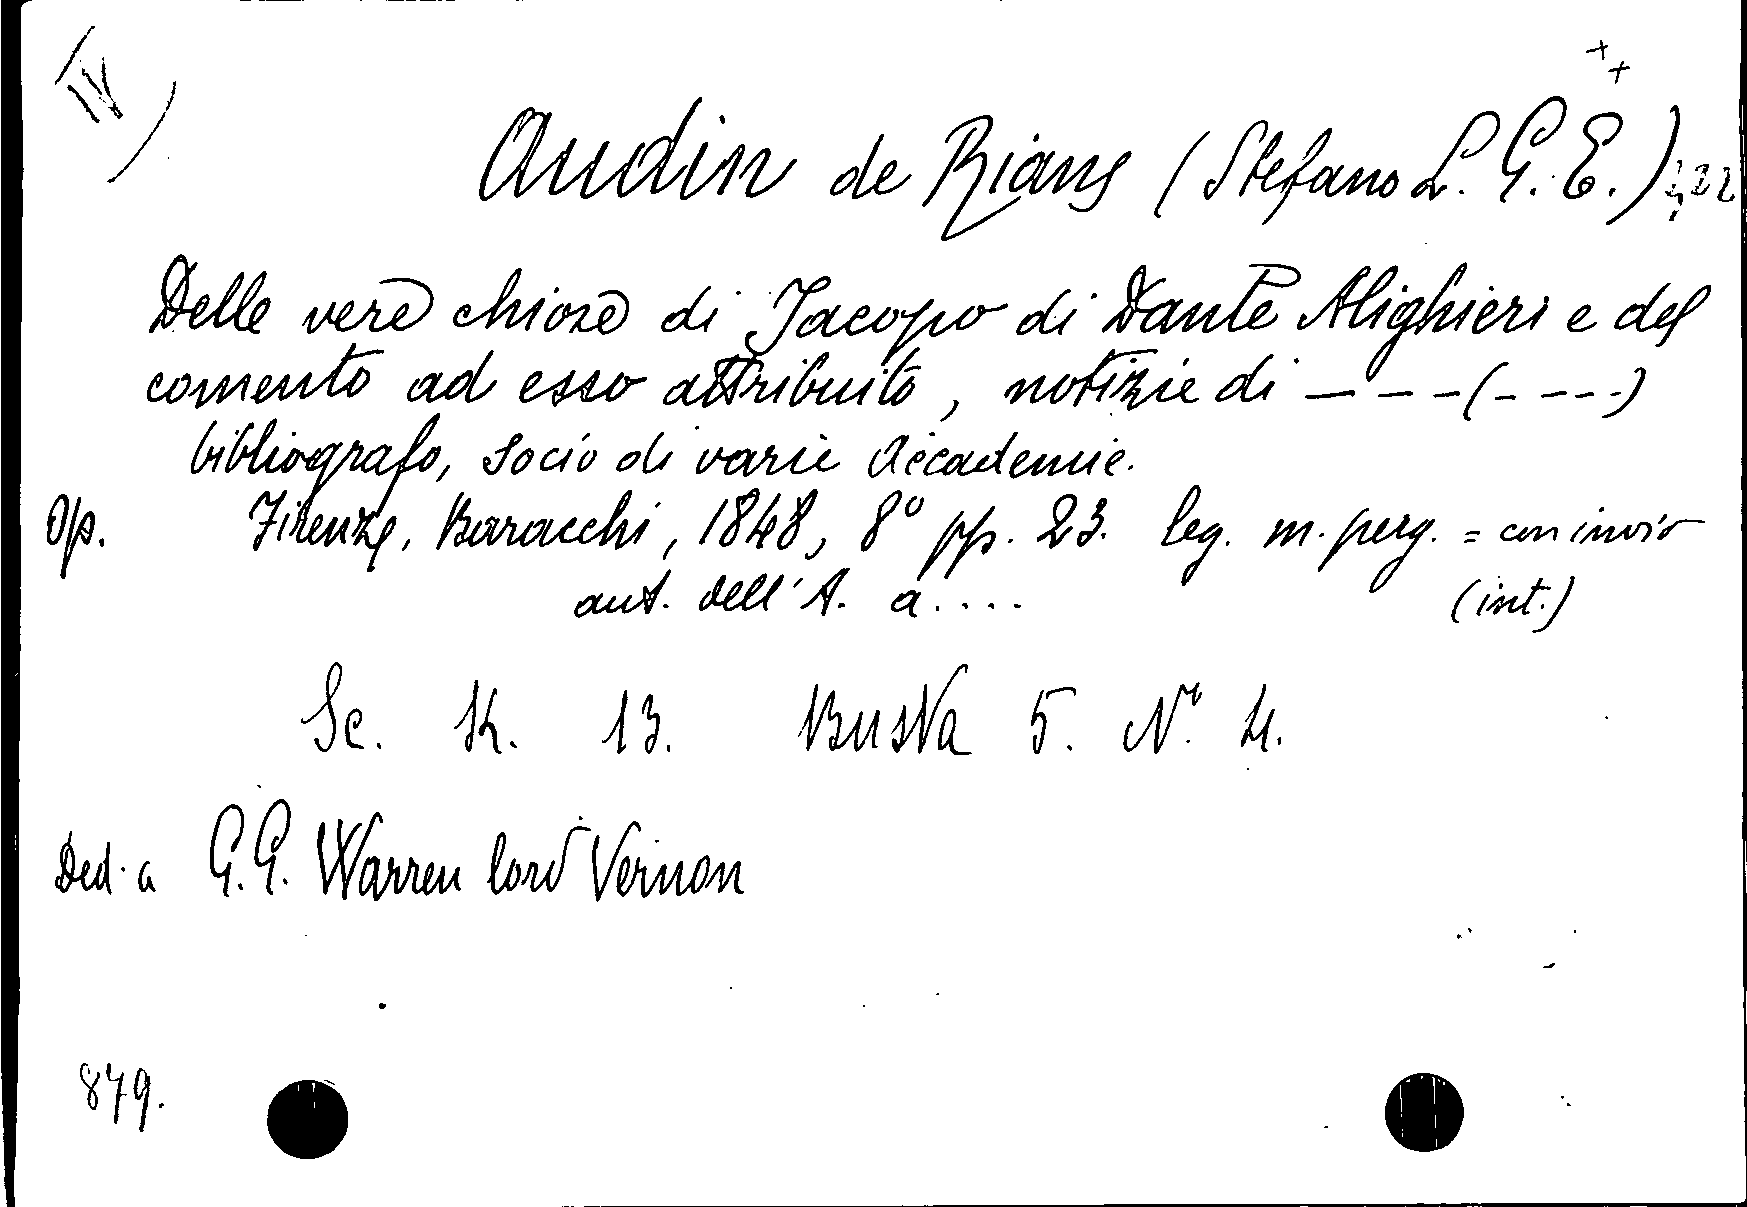 IV
+ +
Audin de Rians (Stefano L. G. E.)
Delle vere chiose di Jacopo di Dante Alighieri e del
comento ad esso attribuito, notizie di – – – (– – – –)
bibliografo, socio di varie Accademie.
Op. Firenze, Baracchi, 1848, 8° pp. 23. leg. m. perg. = con invio
aut. dell'A. a.... (int.)
Sc. K. 13. Busta 5. Nº 4.
Ded. a G. G. Warren lord Vernon
879.